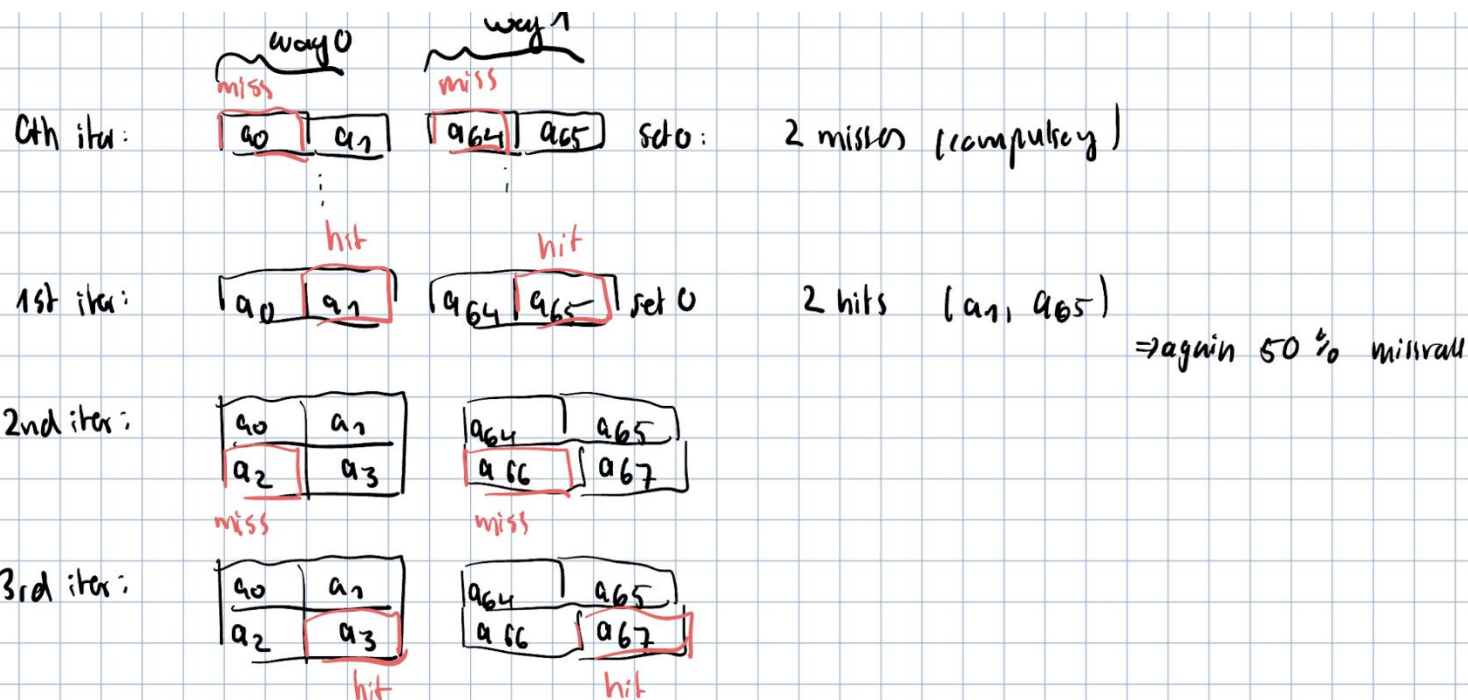 way 0 way 1
miss miss
0th iter: a0 a1 a64 a65 set 0: 2 misses (compulsory)
hit hit
1st iter: a0 a1 a64 a65 set 0 2 hits (a1, a65)
⇒ again 50 % missrate
2nd iter: a0 a1 a64 a65
a2 a3 a66 a67
miss miss
3rd iter: a0 a1 a64 a65
a2 a3 a66 a67
hit hit